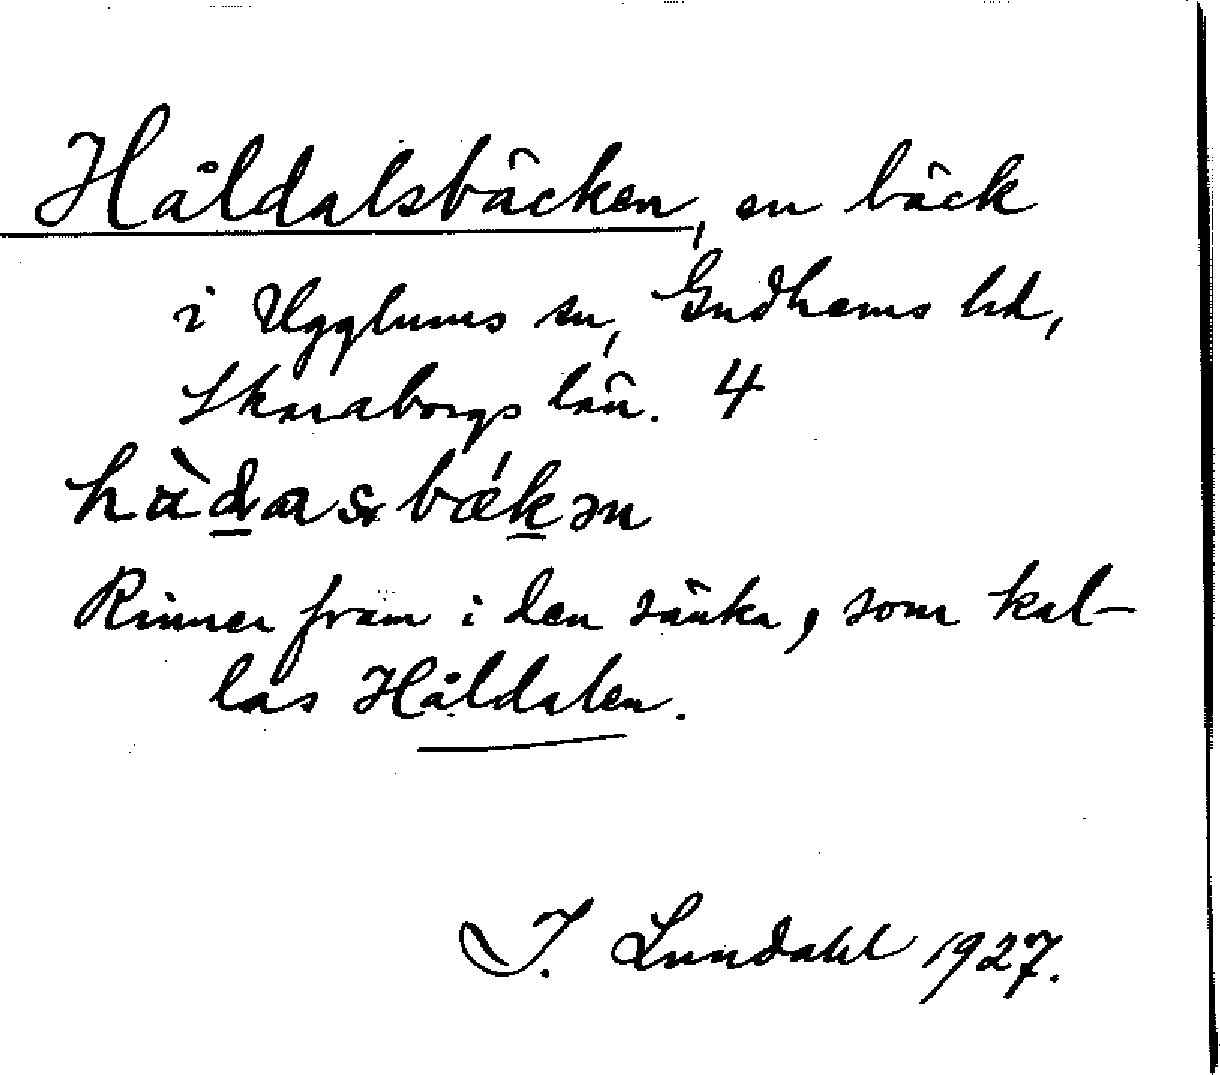 Håldalsbäcken, en bäck
i Ugglums sn, Gudhems hd,
Skaraborgs län. 4
hàdasbǽkən
Rinner fram i den sänka, som kal-
las Håldalen.
I. Lundahl 1927.